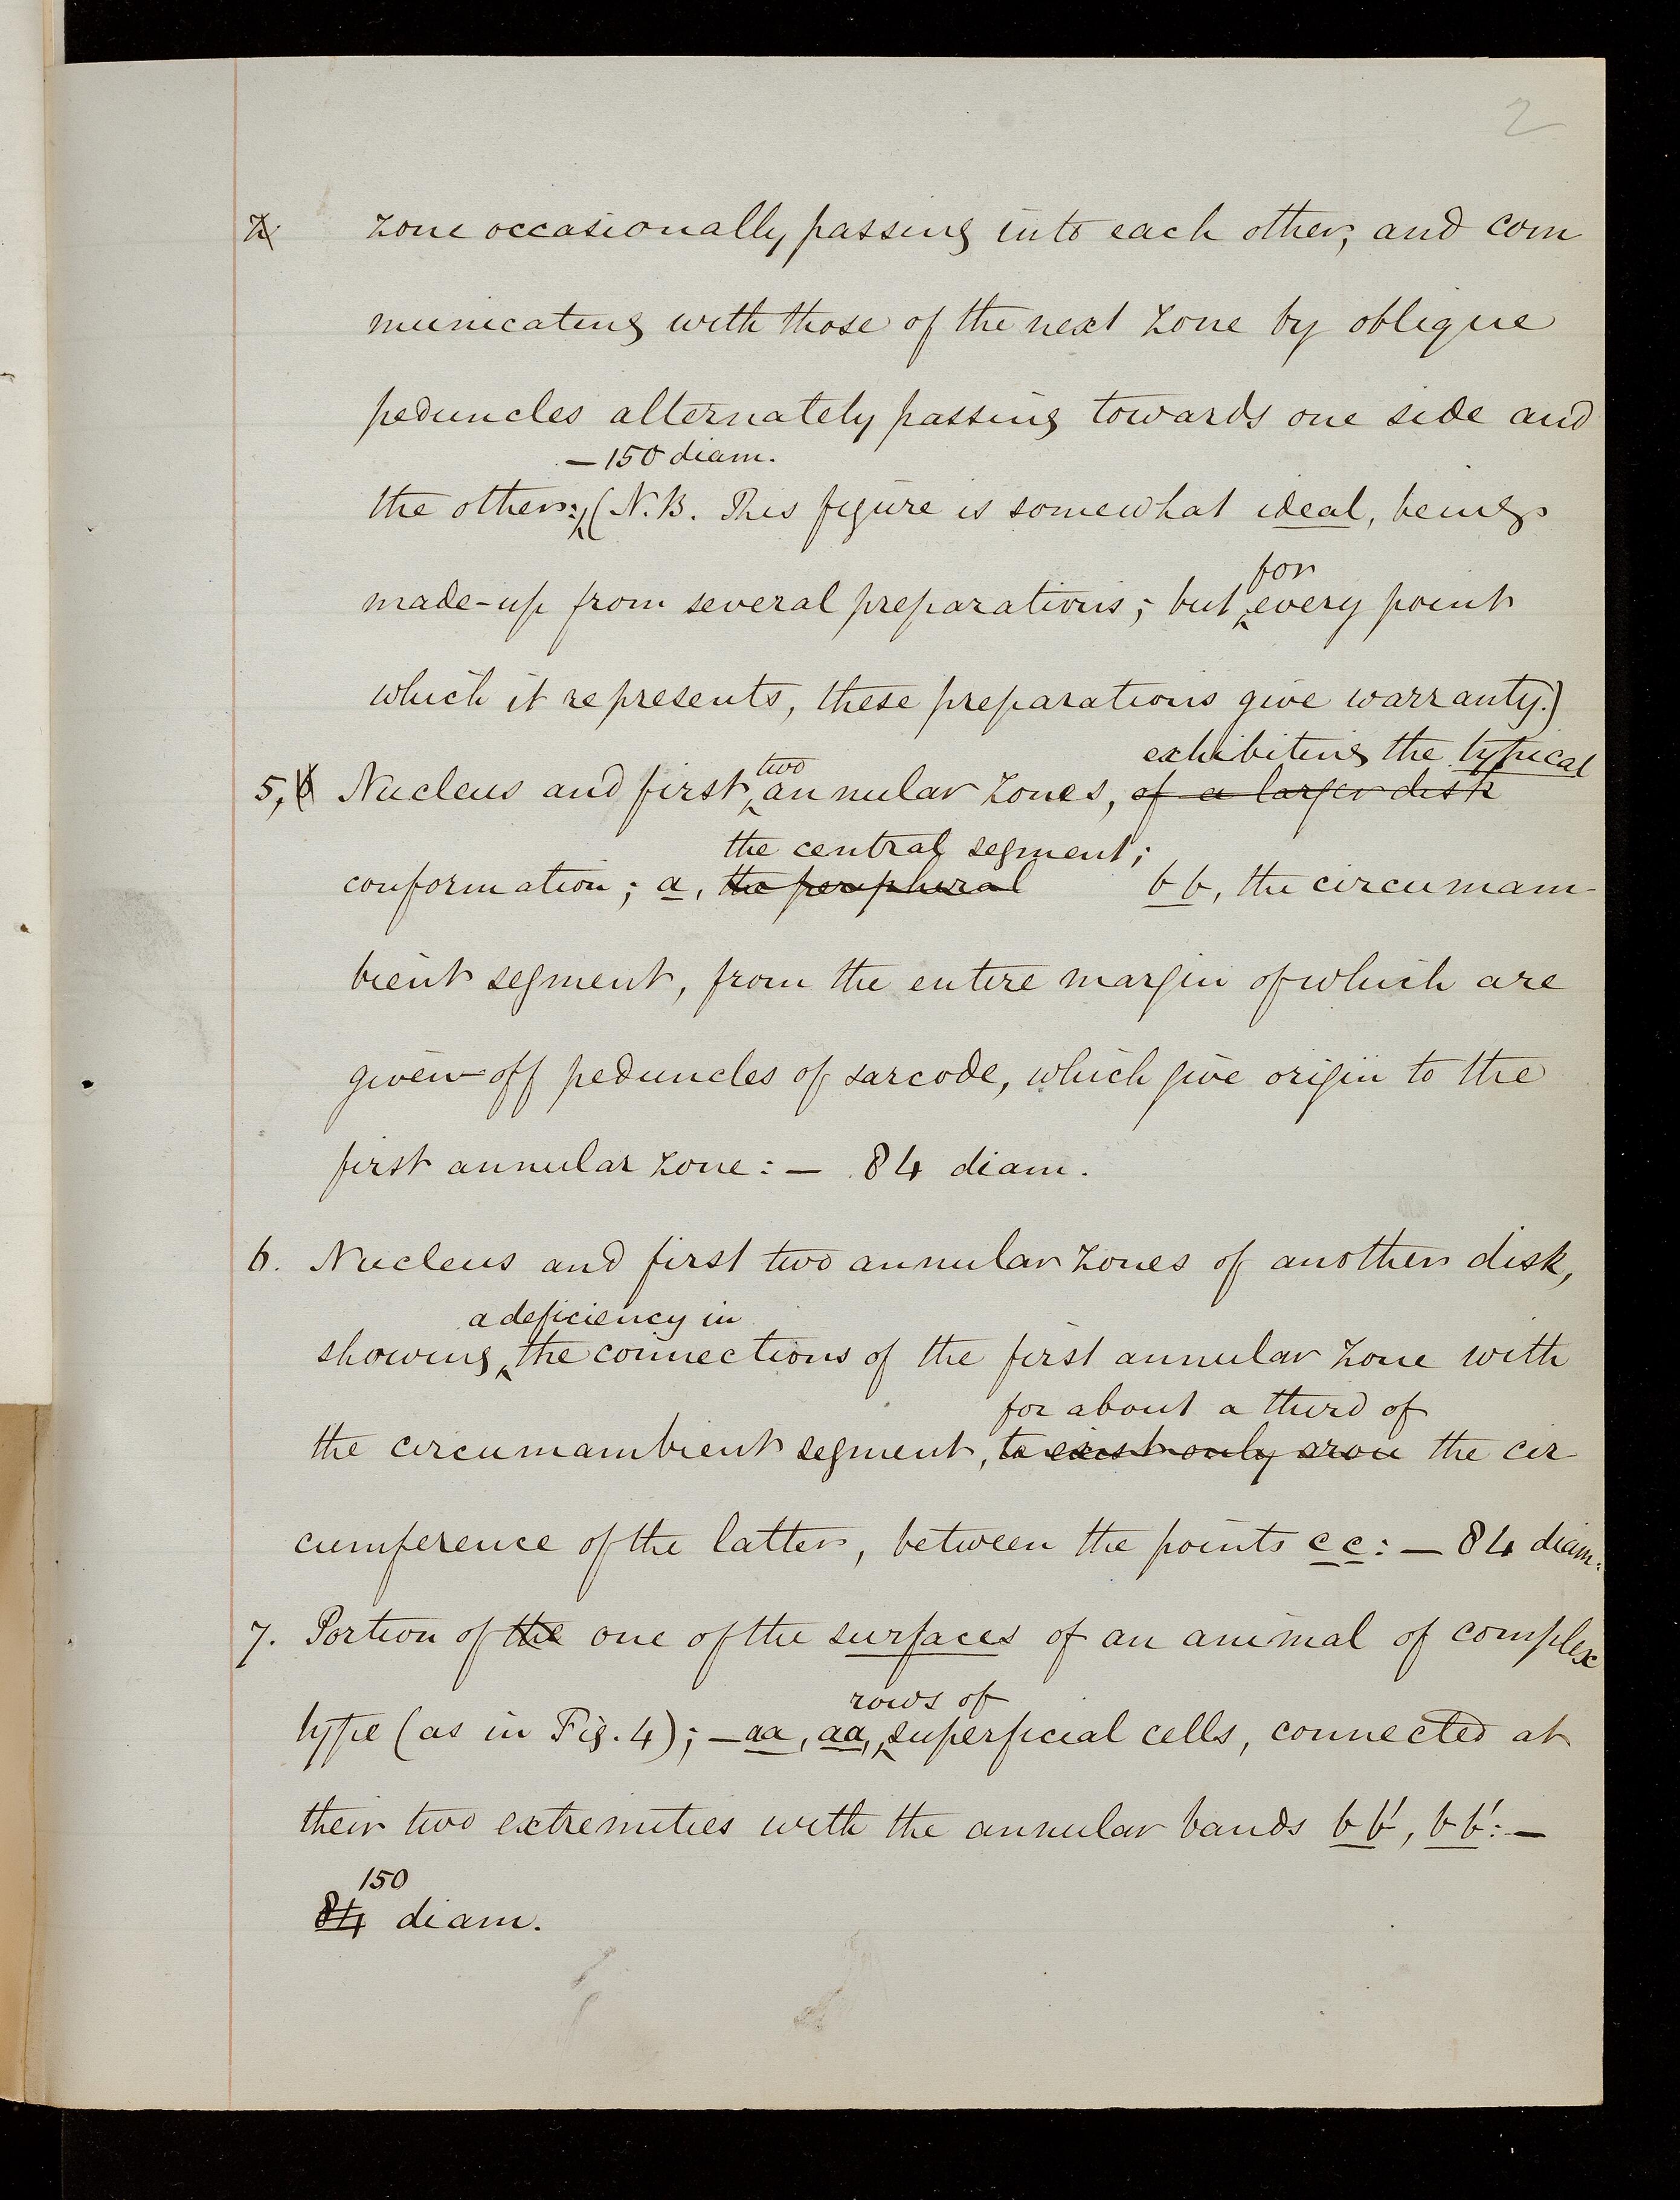 2
zone occasionally passing into each other, and com
municating with those of the next zone by oblique
peduncles alternately passing towards one side and
— 150 diam.
the other:, (N.B. This figure is somewhat ideal, being
for
made-up from several preparations; but every point
which it represents, these preparations give warranty.)
exhibiting the typical
two
5, 6 Nucleus and first annular zones, of a larger disk
the central segment;
conformation; a, the peripheral b b, the circumam-
bient segment, from the entire margin of which are
given off peduncles of sarcode, which give origin to the
first annular zone: — 84 diam.
6. Nucleus and first two annular zones of another disk,
a deficiency in
showing the connections of the first annular zone with
for about a third of
the circumambient segment, to exist only arou the cir
cumference of the latter, between the points c c: — 84 diam.
7. Portion of the one of the surfaces of an animal of complex
rows of
type (as in Fig. 4); — aa, aa, superficial cells, connected at
their two extremities with the annular bands b b', b b': —
150
84 diam.